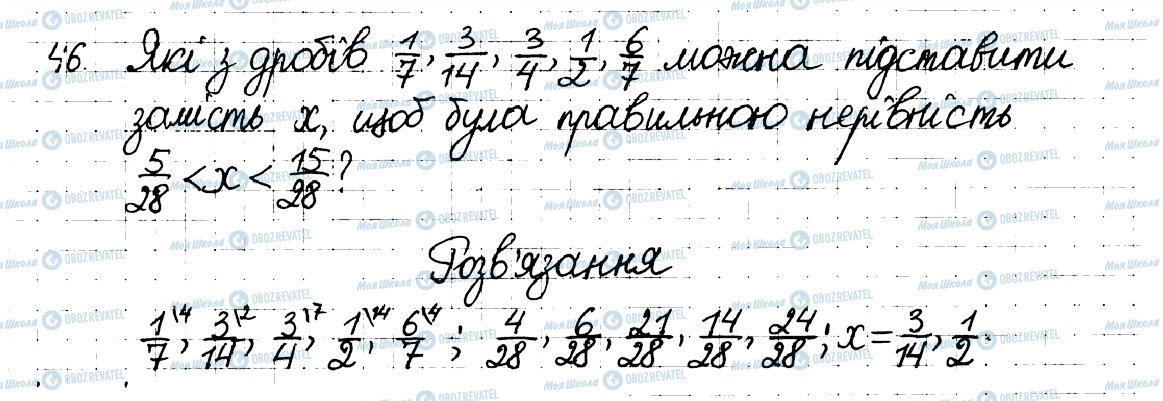 46. Які з дробів 1/7, 3/14, 3/4, 1/2, 6/7 можна підставити
замість x, щоб була правильною нерівність
5/28 < x < 15/28?
Розв'язання
1/7\4, 3/14\2, 3/4\7, 1/2\14, 6/7\4; 4/28, 6/28, 21/28, 14/28, 24/28; x = 3/14, 1/2.
Моя Школа OBOZREVATEL